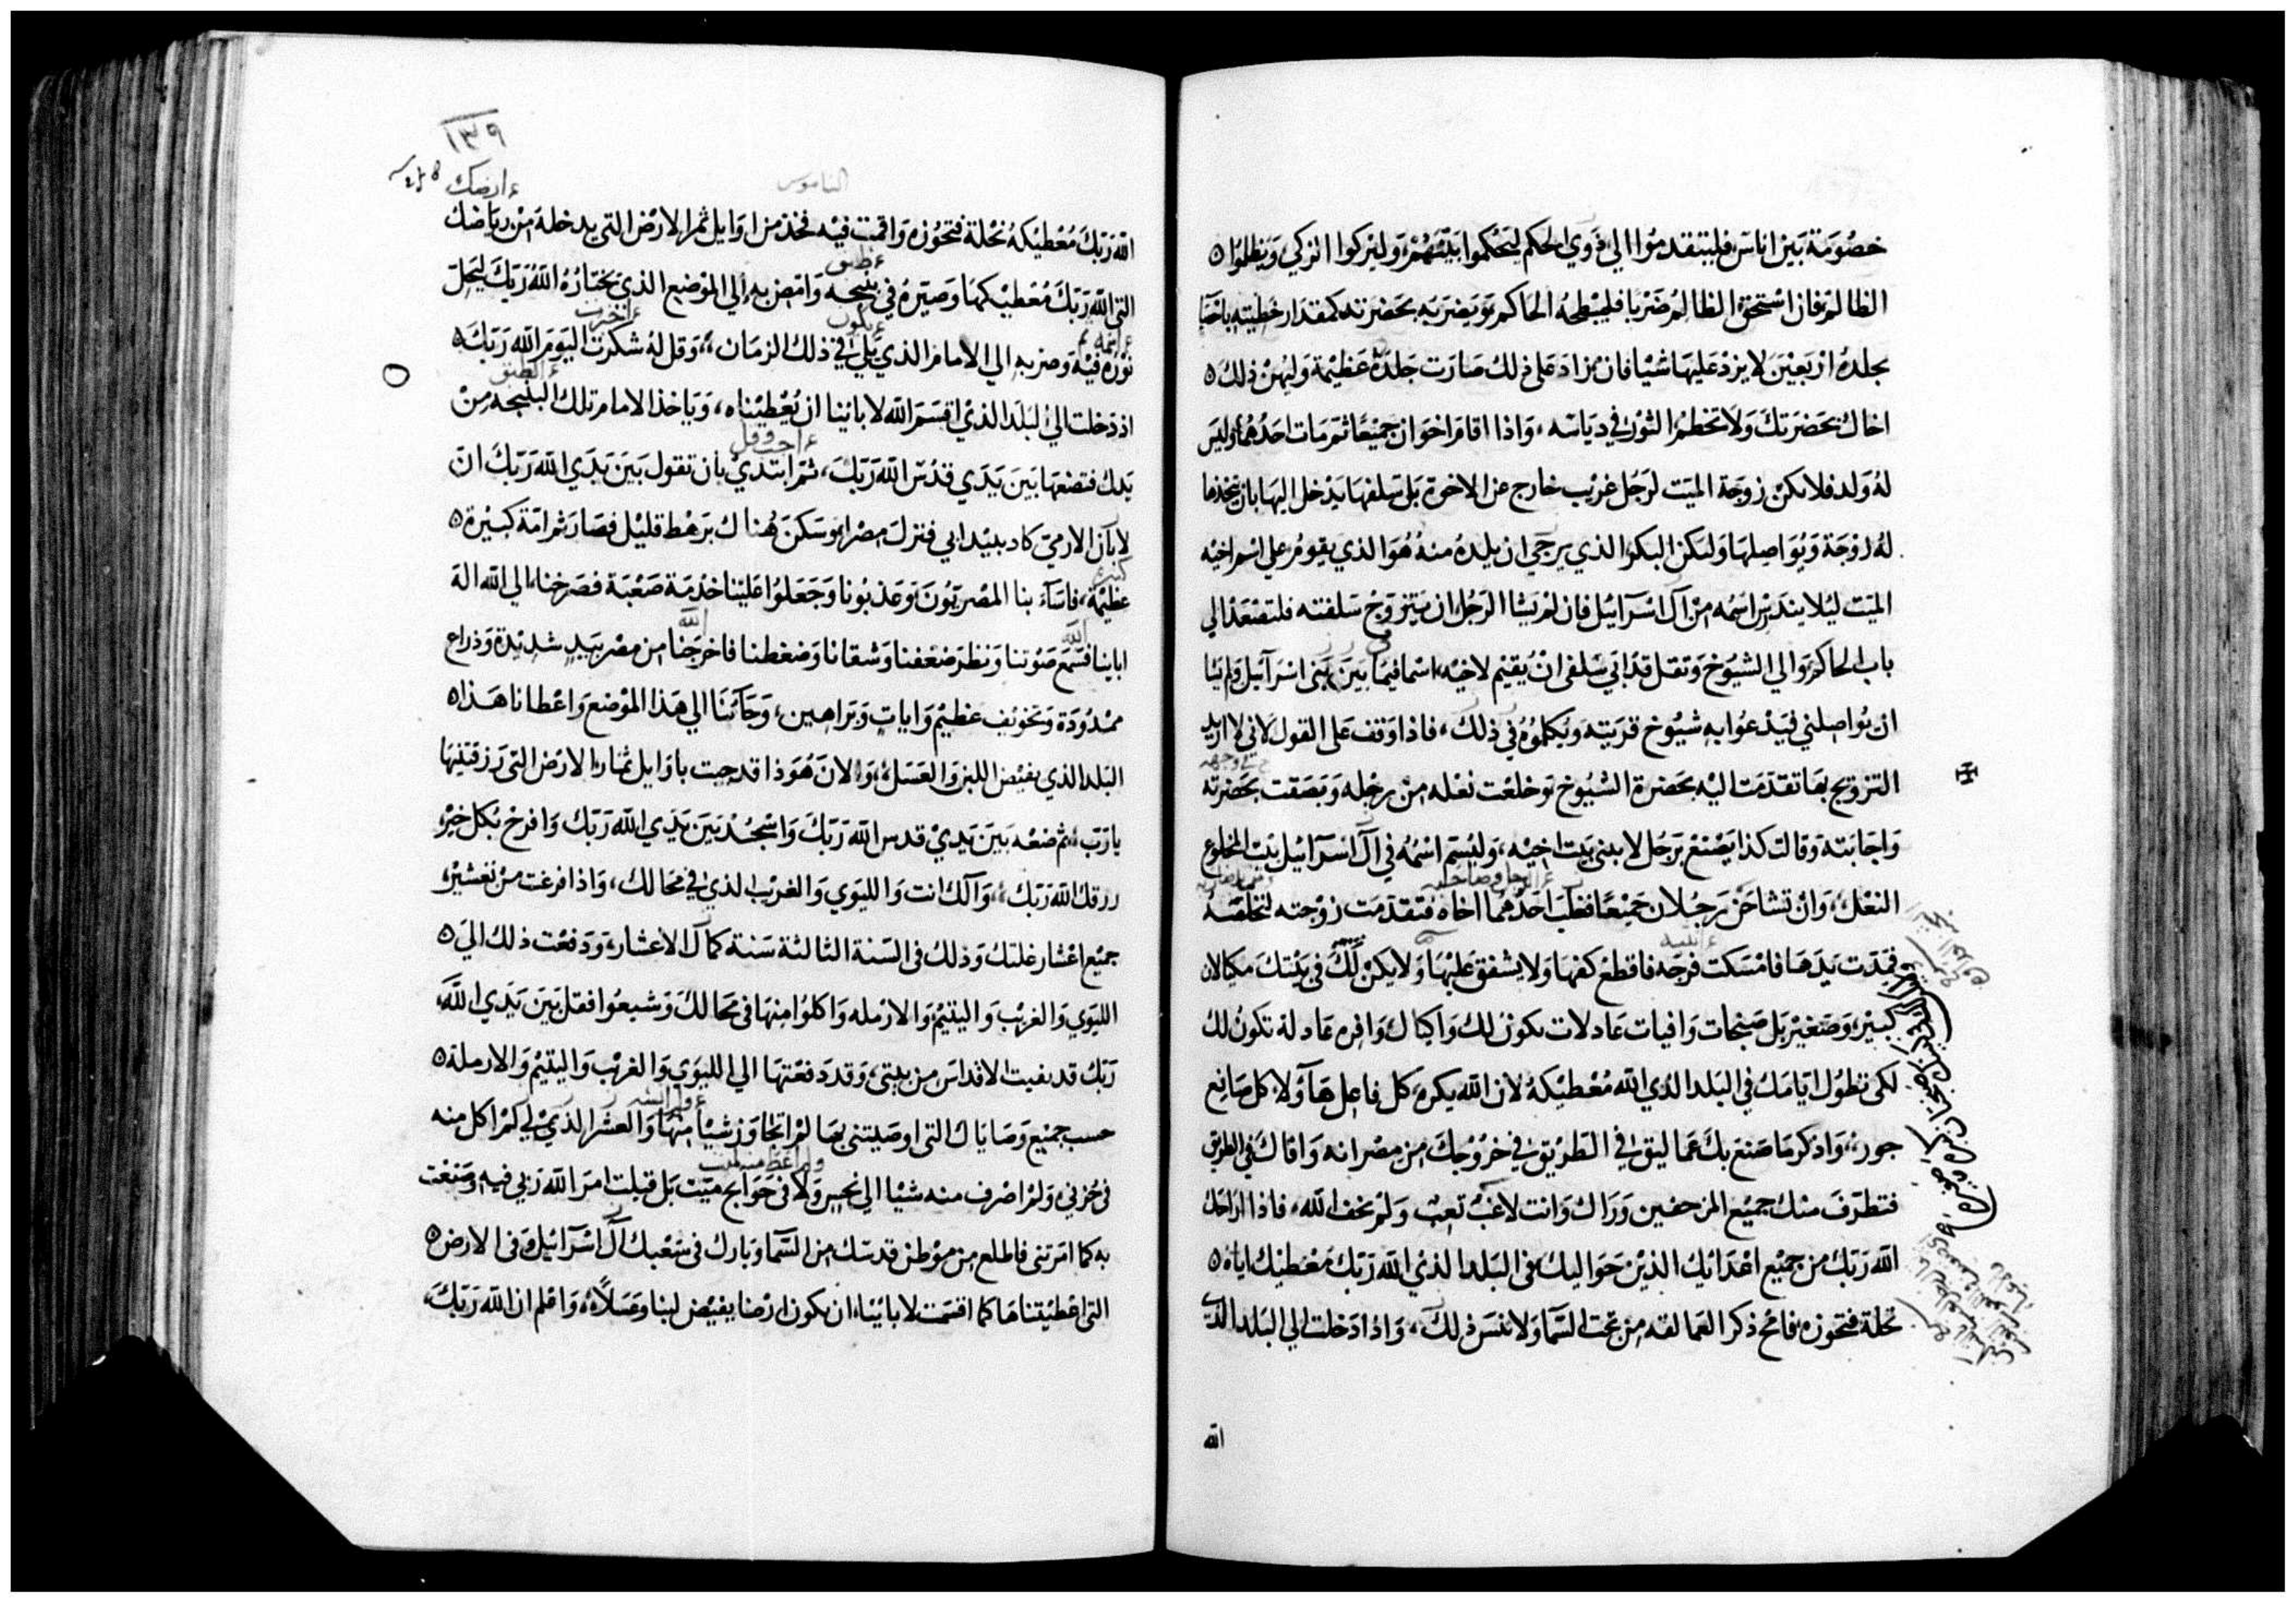 خصُومَة بَين اناسَ فليتقدمُوا الي ذَوي الحكم ليَحكموا بَينهُمْ وَليزكوا الزكي وَيظلموُا
الظالمَ فان استحق الظالمُ ضَرْبا فليبْطحهُ الحاكم وَيضربَه بحَضرته كمقدَار خَطيته باحصَا
يجلدهُ ارْبَعيْنَ لا يزدْ عَليهَا شيا فان زادَ على ذلك صَارَت جَلدَة عَظيمة وَليهُنْ ذلك
اخاك بحَضرَتكَ وَلا تحَطم الثورَ في ديَاسَه، وَاذا اقامَ اخوَان جميْعًا ثم مَات احَدُهُما وَليسَ
لهُ وَلد فلا تكنْ زوجَة الميَت لرَجُل غريْب خارج عن الاخوة بَل سَلفهَا يَدْخل اليهَا بان يتخذها
لهُ زوْجَة وَيُوَاصِلهَا وَلتكن البكر الذي يرجَي ان يلدهُ منهُ هُوَ الذي يقومُ على اسم اخيْه
الميَت ليْلا يندَرس اسَمُه من ال اسْرَآئيل فان لمْ يَشا الرَجُل ان يَتزوَجْ سَلفته فلتصْعَدْ الي
باب الحاكم وَالي الشيُوخ وَتقل قدْ ابَي سَلفي انْ يُقيم لاخيْه اسْما فيمَا بيَن بَني اسْرَآئيل وَلم يَشا
ان يُوَاصِلني فيَدْعُوا به شيُوخ قريَته وَيُكلموُهُ في ذلكَ، فاذا وَقفَ عَلى القول لاني لا اريد
التزويج بهَا تقدَمَت اليْه بحَضرة الشيُوخ وَخلعْت نعْله من رجْله وَبَصَقت بحَضرته
وَاجَابَته وَقالت كذا يَصْنعْ بَرجُل لا يبني بَيْت اخيْه، وَليُسَم اسْمُهُ في آل اسْرَآئيل بَيْت المخلوع
النعْل، وَانْ تشاحَن رَجُلان جَميْعًا فغلبَ احَدُهما اخاه فتقدَمَت زوْجته لتخلصَهُ
فمدَت يدَهَا فامْسَكت فرجَه فاقطعْ كفهَا وَلا يشفق عَليْهَا وَلا يكنْ لكَ في بَيْتك مكيَالان
كبيرْ وَصَغيْر بَل صَنجات وَافيات عَادلات تكون لك وَاكيَال وَافره عَادلة تكونُ لك
لكي تطوُل ايَامَك في البَلد الذي الله مُعْطيكهُ لان الله يكرهُ كل فاعل هَاوُلا كل صَانع
جور، وَاذكر مَا صَنعَ بكَ عَماليق في الطَريْق في خرُوْجكَ من مصْر انه وَافاك في الطريق
فتطرَفَ منك جميْع المزحفين وَرَاك وَانت لاغبْ تعِبْ وَلمْ تخف الله، فاذا اراحَك
الله رَبَكَ من جميْع اعْدَائك الذيْن حَوَاليك في البَلد الذي الله رَبَكَ مُعْطيْك اياه
نحْلة فتحوزه فامْح ذكر العمالقه من تحت السَمَا وَلا تنسَ ذلكَ، وَاذا دَخلت الي البَلد الذي
الله
١٣٩
الناموس
ارضك
الله رَبَكَ مُعْطيْكهُ نحْلة فتحُوْزه وَاقمت فيْه فخذ من اوَايل ثمر الارْض التي يدخله امن ريَاضك
التي الله رَبَكَ مُعْطيْكهَا وَصَيَرهُ في بنيجه وَامْضِ به الي الموْضع الذي يَختارُهُ الله رَبَكَ ليَحل
نوْرُه فيْه وَصر به الي الامام الذي يَلي في ذلك الزمَان، وَقل لهُ شكرت اليَومَ الله رَبَكَ
اذ دَخلت الي البَلد الذي اقسَمَ الله لابائنا ان يُعْطيْناه، وَيَاخذ الامام تلك البنيجه منْ
يَدك فتضعْهَا بَينَ يَدَي قدُسَ الله رَبَكَ، ثمَ ابتدي بان تقول بَينَ يَدَي الله رَبَكَ ان
لابَان الارميَ كاد يبيْد ابي فنزلَ مصْر وَسَكنَ هُناك برَهْط قليْل فصَارَ ثم امَة كبيْرة
عظيْمة، فاسَآءَ بنا المصْريوُنَ وَعَذبُونا وَجَعَلوُا عَليْنا خدْمَة صَعْبَة فصَرخنا الي الله الهَ
ابَاينا فسَمعَ صَوْتنا وَنظرَ ضعْفنا وَشقانا وَضغطنا فاخرَجَنا من مصْر بَيدٍ شدِيْدَة وَذراع
ممْدُوْدَة وَتخويْف عَظيْم وَايَاتٍ وَبَراهِين، وَجَآئنا الي هَذا الموْضع وَاعْطانا هَذا
البَلد الذي يفيْض اللبن وَالعَسَل، وَالانَ هُوَذا قد جيت باوَايل ثمار الارْض التي رَزقتنيهَا
يا رَبّ، ثم ضعْه بَينَ يَديْ قدس الله رَبَكَ وَاسْجُدْ بَينَ يَدَي الله رَبَك وَافرَحْ بكل خيْر،
رزقك الله رَبَك، وَآلك انت وَالليَوي وَالغريْب الذي في محَالك، وَاذا فرغت منْ تعْشيْر
جميْع اعْشار غلتك وَذلك في السَنة الثالثة سَنة كمال الاعْشار، وَدَفعْت ذلك الي
الليَوي وَالغريْب وَاليتيْم وَالارْمله وَاكلوُا منْهَا في محَالكَ وَشبعُوا فقل بَينَ يَدَي الله
رَبَك قد نفيت الاقداسَ من بيتي، وَقد دَفعْتهَا الي الليَوي وَالغريْب وَاليتيْم وَالارملة
حسب جميْع وَصَايَاك التي اوصَيتني بهَا لمْ اتجاوَز شيْا منْهَا وَالعشر الذي لي لمْ اكل منه
في حُزني وَلمْ اصْرف منه شيْا الي نجِس وَلا في حَوَايج ميَت بَل قبلت امرَ الله ربي فيه وَصَنعْت
به كما امَرتني فاطلع من موْطن قدسَك من السَمَا وَبَارك في شعْبك آل اسْرَآئيل وَفي الارض
التي اعْطيْتناهَا كما اقسَمت لابائنا، ان تكون ارْضا يفيْض لبنا وَعَسَلاً، وَاعْلم ان الله رَبَكَ،